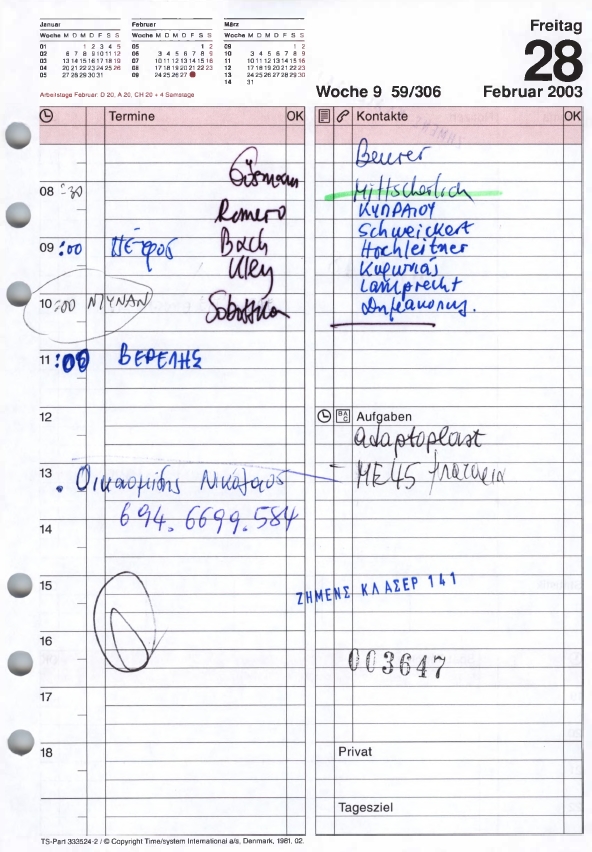 Januar
Woche M D M D F S S
01 1 2 3 4 5
02 6 7 8 9 10 11 12
03 13 14 15 16 17 18 19
04 20 21 22 23 24 25 26
05 27 28 29 30 31
Februar
Woche M D M D F S S
05 1 2
06 3 4 5 6 7 8 9
07 10 11 12 13 14 15 16
08 17 18 19 20 21 22 23
09 24 25 26 27
März
Woche M D M D F S S
09 1 2
10 3 4 5 6 7 8 9
11 10 11 12 13 14 15 16
12 17 18 19 20 21 22 23
13 24 25 26 27 28 29 30
14 31
Arbeitstage Februar: D 20, A 20, CH 20 + 4 Samstage
Freitag
28
Woche 9 59/306 Februar 2003
Termine OK
08 :30
Romero
09 :00 Πέτρος Bach
Uley
10 :00 ΝΤΥΝΑΝ
11 :00 ΒΕΡΕΛΗΣ
12
13
. Οικονομίδης Νικόλαος
694.6699.584
14
15
16
17
18
Kontakte OK
Beurer
Mittscherlich
ΚΥΠΡΑΙΟΥ
Schweickert
Hochleitner
Κυρωνάς
Lamprecht
Aufgaben
adaptoplast
ME45
ΖΗΜΕΝΣ ΚΛΑΣΕΡ 141
003647
Privat
Tagesziel
TS-Part 333524-2 / © Copyright Time/system International a/s, Denmark, 1981, 02.